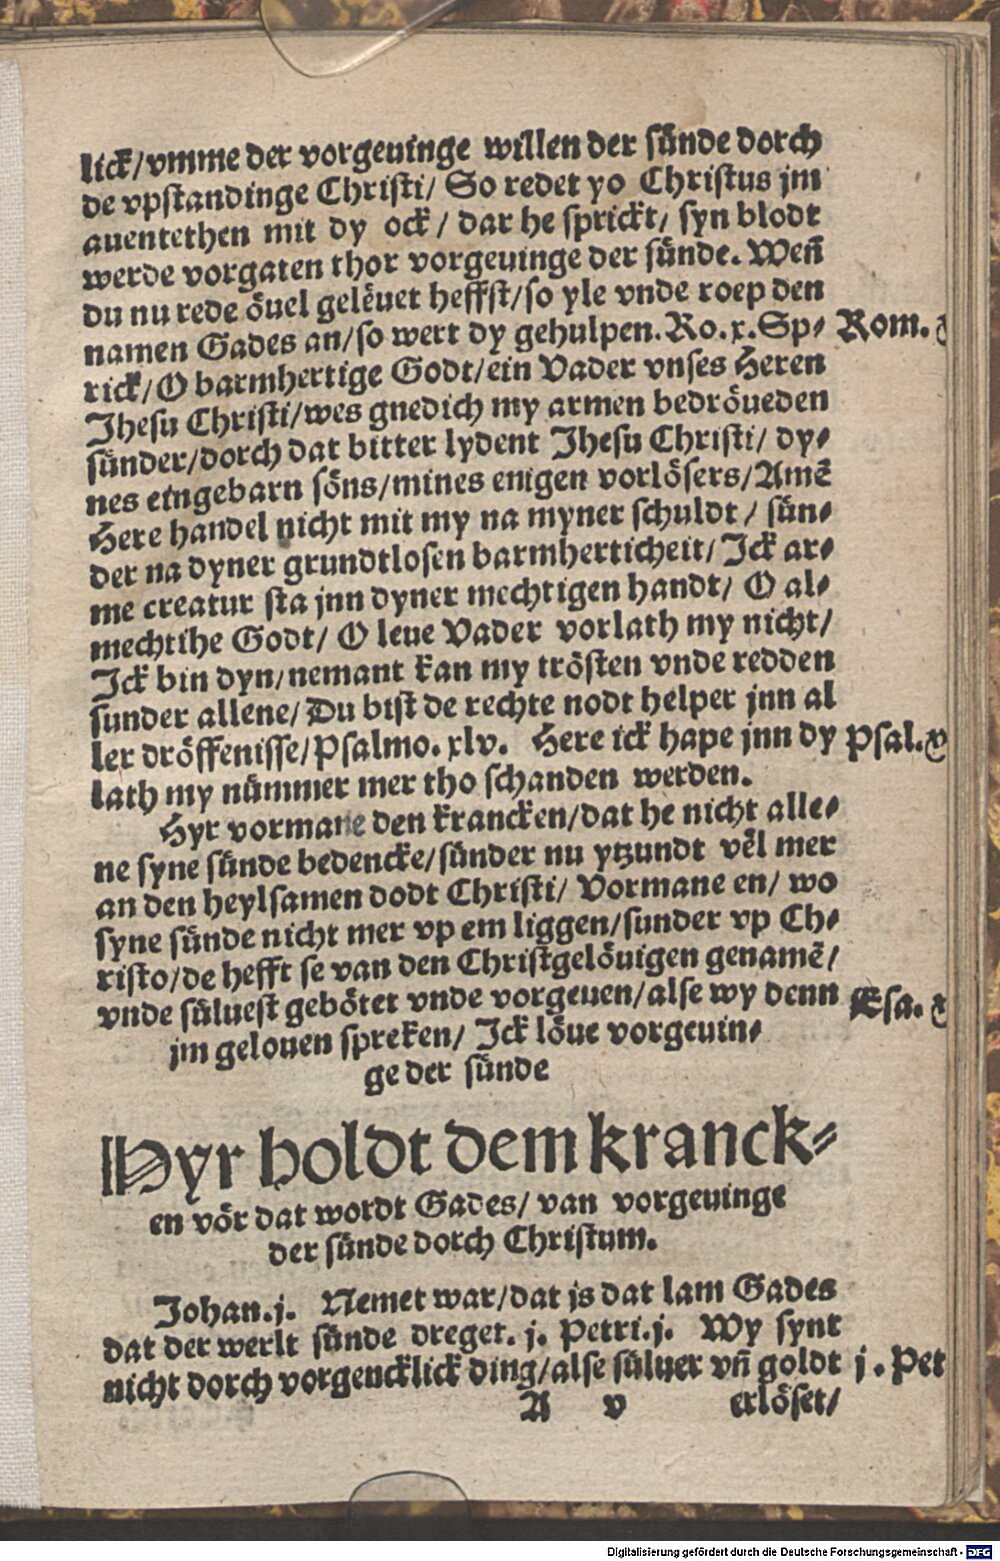 lick/vmme der vorgeuinge willen der sünde dorch
de vpstandinge Christi/ So redet yo Christus jm
auentethen mit dy ock/ dar he sprickt/ syn blodt
werde vorgaten thor vorgeuinge der sünde. Weñ
du nu rede öuel gelëuet heffst/so yle vnde roep den
namen Gades an/so wert dy gehulpen. Ro.x. Sp⸗ Rom.
rick/O barmhertige Godt/ein Vader vnses Heren
Jhesu Christi/wes gnedich my armen bedröueden
sünder/dorch dat bitter lydent Jhesu Christi/ dy⸗
nes eingebarn söns/mines enigen vorlösers/Amẽ
Here handel nicht mit my na myner schuldt/ sün⸗
der na dyner grundtlosen barmherticheit/ Jck ar⸗
me creatur sta jnn dyner mechtigen handt/ O al⸗
mechtihe Godt/ O leue Vader vorlath my nicht/
Jck bin dyn/nemant kan my trösten vnde redden
sunder allene/Du bist de rechte nodt helper jnn al
ler dröffenisse/Psalmo.xlv. Here ick hape jnn dy Psal.
lath my nümmer mer tho schanden werden.
Hyr vormane den krancken/dat he nicht alle⸗
ne syne sünde bedencke/sünder nu ytzundt vël mer
an den heylsamen dodt Christi/ Vormane en/ wo
syne sünde nicht mer vp em liggen/sunder vp Ch⸗
risto/de hefft se van den Christgelöuigen genamẽ/
vnde süluest gebötet vnde vorgeuen/alse wy denn Esa.
jm gelouen spreken/ Jck löue vorgeuin⸗
ge der sünde
Hyr holdt dem kranck⸗
en vör dat wordt Gades/ van vorgeuinge
der sünde dorch Christum.
Johan.j. Nemet war/dat js dat lam Gades
dat der werlt sünde dreget. j. Petri.j. Wy synt
nicht dorch vorgencklick ding/alse süluer vñ goldt j. Pet
A v erlöset/
Digitalisierung gefördert durch die Deutsche Forschungsgemeinschaft - DFG